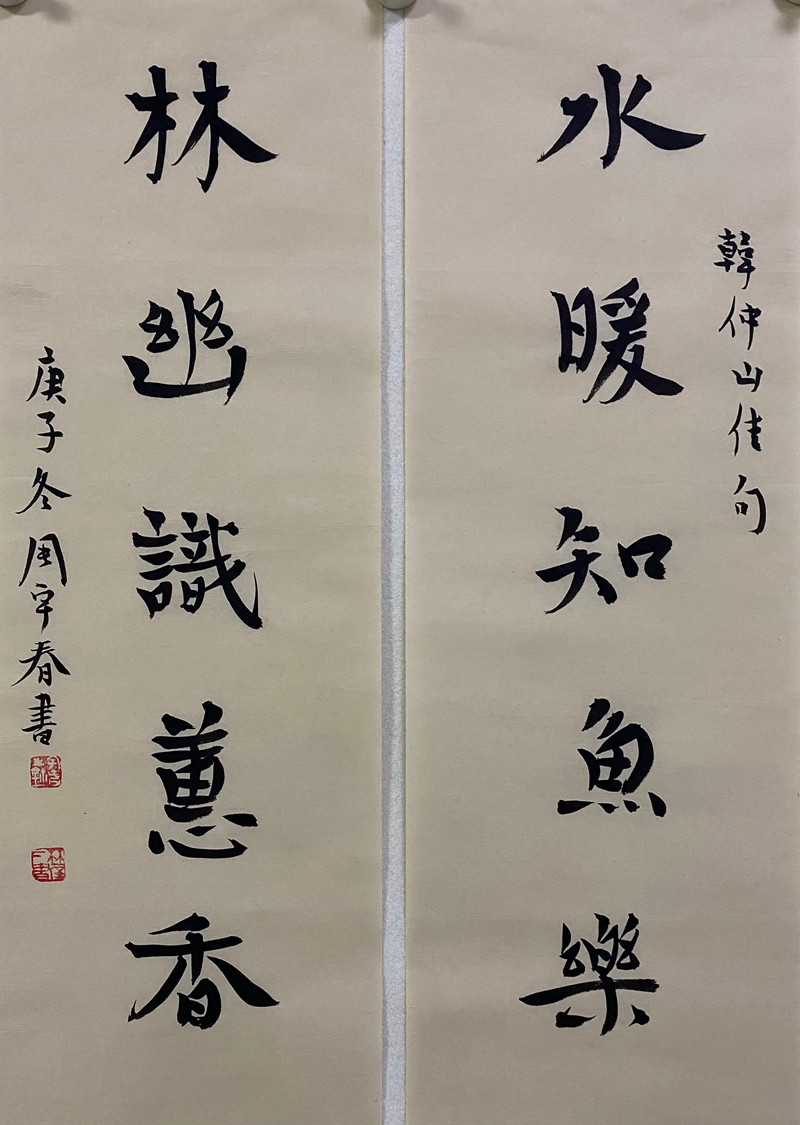 水暖知魚樂
韓仲山佳句
林幽識蕙香
庚子冬周宇春書